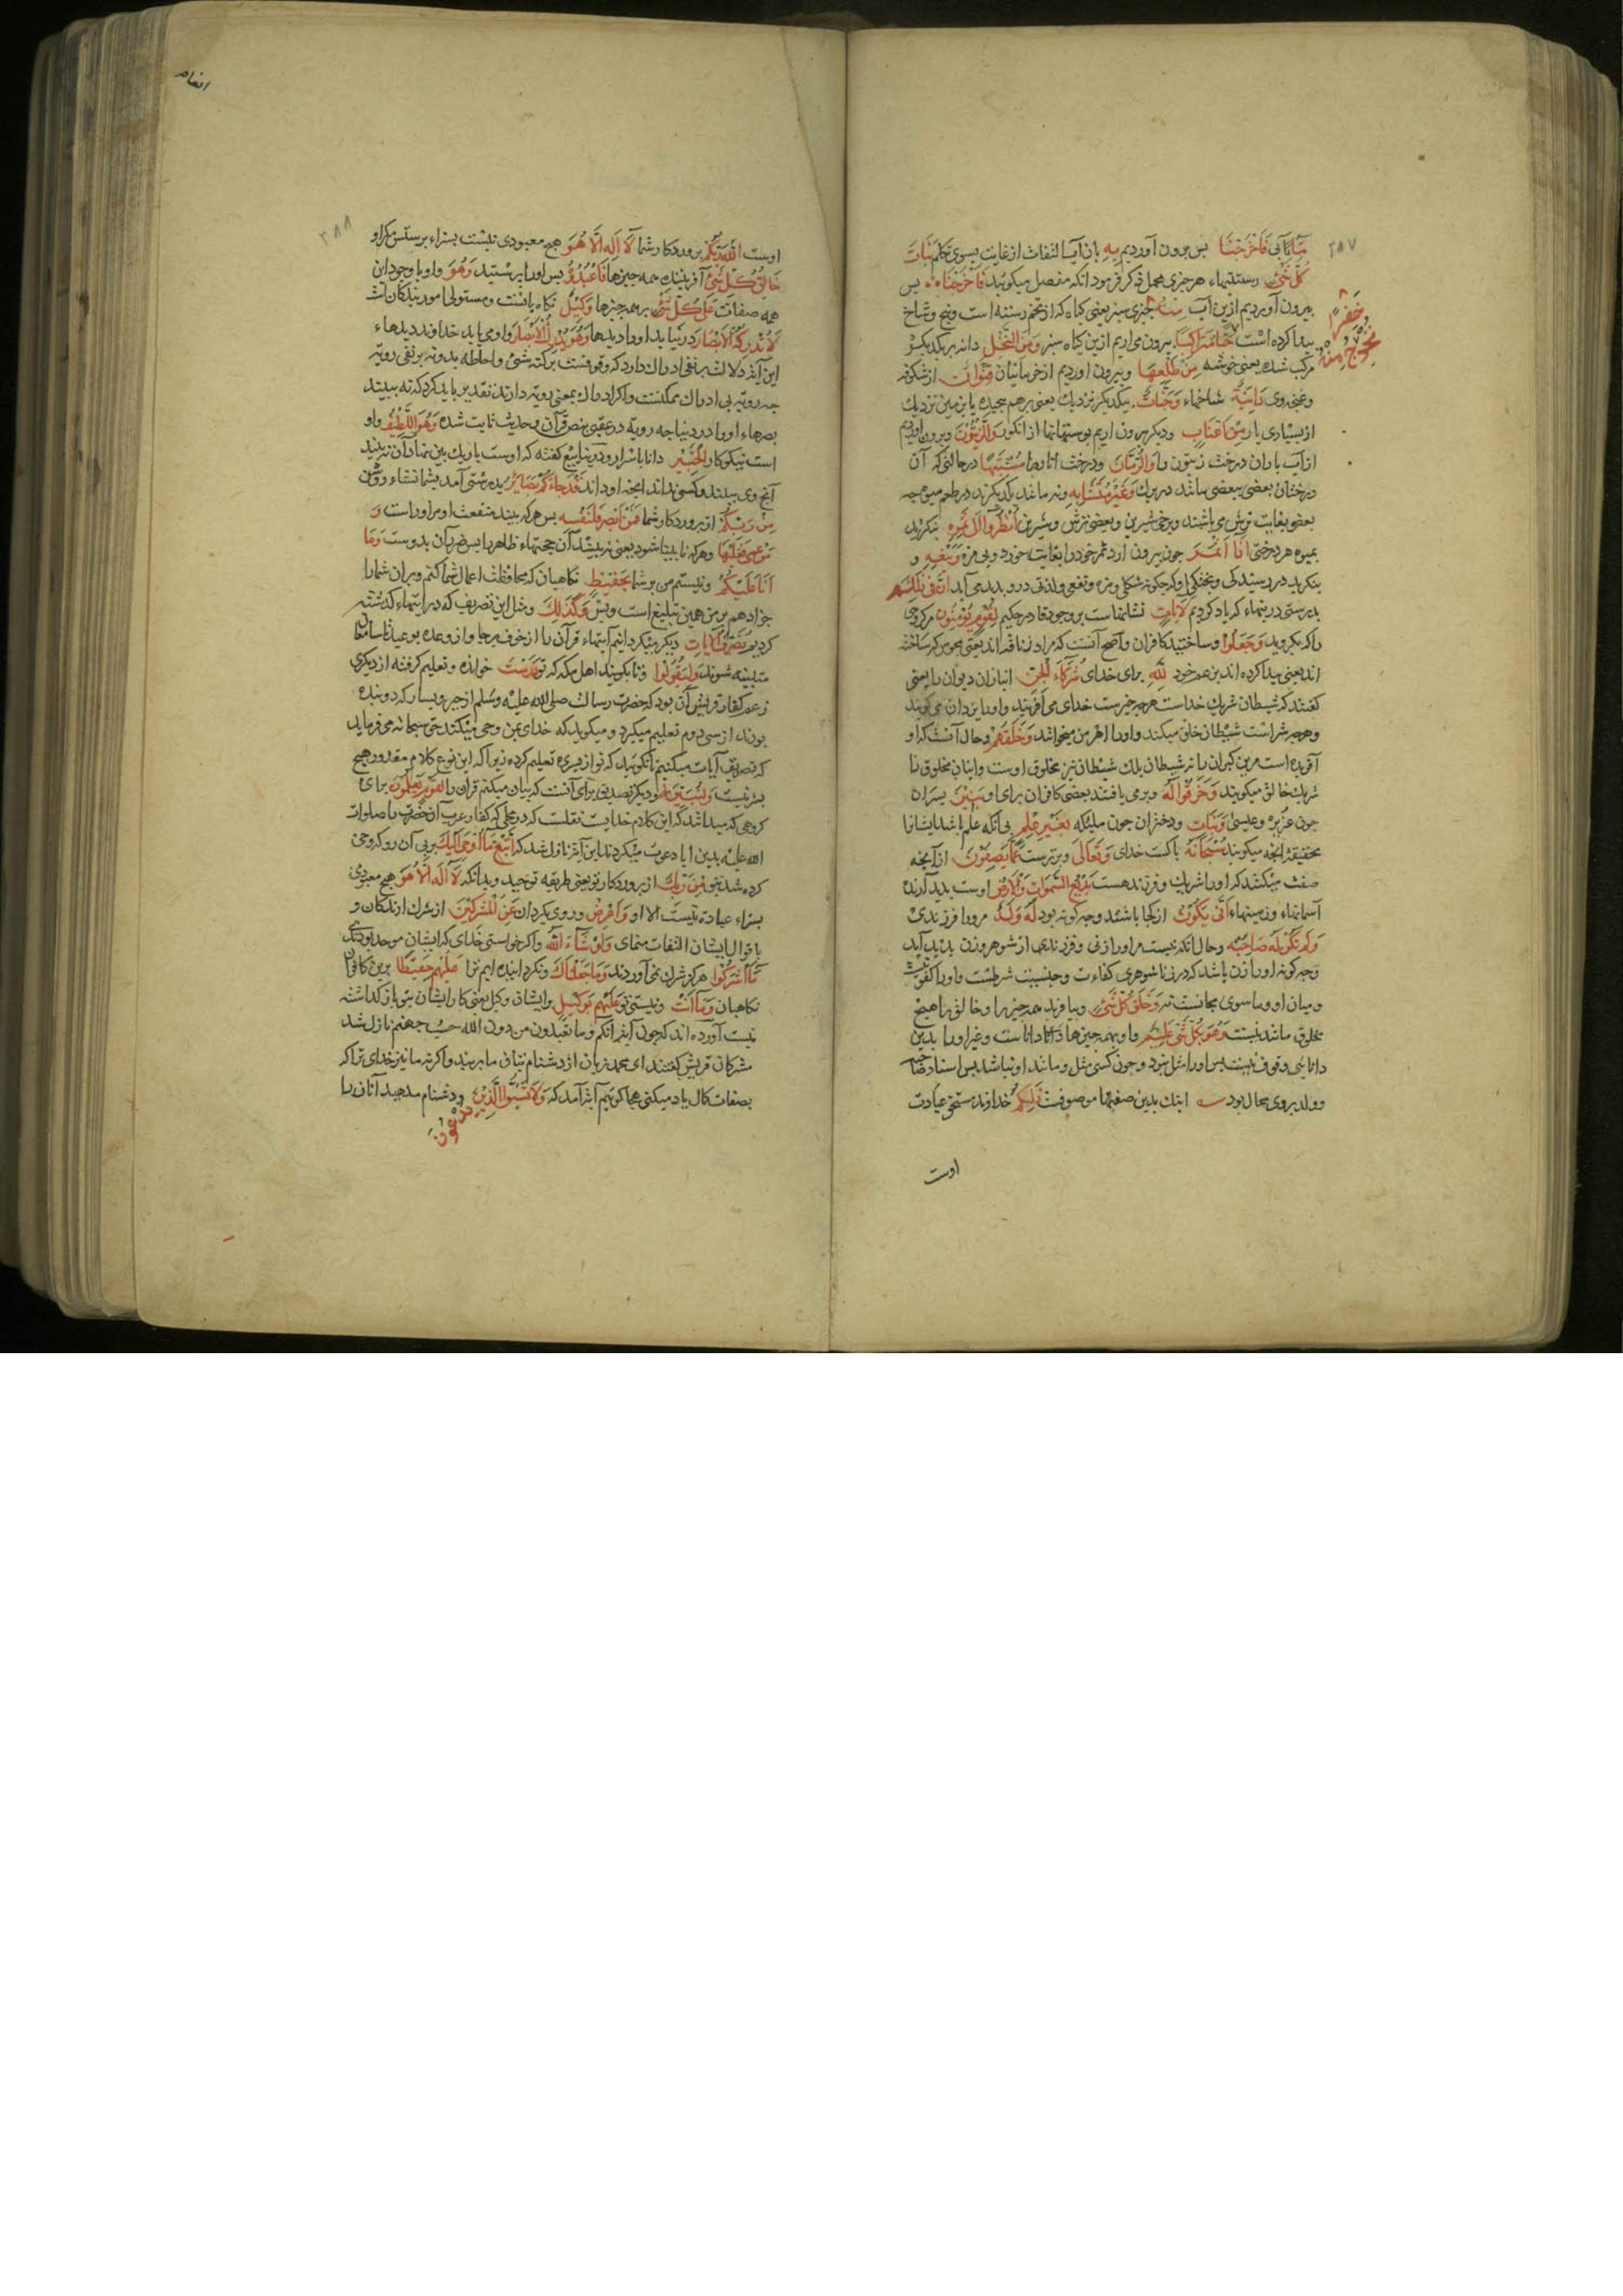 ۲۸۷
فَاَخْرَجْنَا پس برون آوردیم بِهِ بان آب التفات از غایت بسوی تکلم نَبَاتَ
كُلِّ شَیْءٍ رستنیهاء هر چیزی مجمل ذکر فرمود آنکه مفصل میگوید فَاَخْرَجْنَا پس
بیرون آوردیم ازین آب مِنْهُ چیزی سبز یعنی کیاه که از تخم رسته است و بیخ و شاخ
خَضِرًا
نُخْرِجُ مِنْهُ
پیدا کرده است حَبًّا مُتَرَاكِبًا بیرون می اریم ازین کیاه سبز وَمِنَ النَّخْلِ دانه بر یکدیکر
مرکب شده یعنی خوشه مِنْ طَلْعِهَا و بیرون اوردیم از خرمابنان قِنْوَانٌ از شکوفه
دَانِیَةٌ شاخهاء وَجَنَّاتٍ بیکدیکر نزدیک یعنی برهم پیچیده یا بزمین نزدیک
از بسیاری بار مِنْ اَعْنَابٍ و دیکر بیرون اریم بوستانها از انکور وَالزَّیْتُونَ و برون اوردیم
از آب باران درخت زیتون را وَالرُّمَّانَ و درخت انار را مُشْتَبِهًا در حالتی که آن
درختان بعضی ببعضی مانند در برک وَغَیْرَ مُتَشَابِهٍ و نه مانند یکدیکرند در طعم میوه چه
بعضی بغایت ترش می باشند و برخی شیرین و بعضی ترش و شیرین اُنْظُرُوا اِلَى ثَمَرِهِ بنکرید
بمیوه هر درختی اِذَا اَثْمَرَ چون بیرون ارد ثمر خود را بغایت خورد و بی مزه وَیَنْعِهِ و
بنکرید در رسیدکی و پختکی او که چکونه شکلی و مزه و نفعی و لذتی درو پدید می آید اِنَّ فِی ذٰلِكُمْ
بدرستی درینهاء که یاد کردیم لَآیَاتٍ نشانهاست بر وجود قادر حکیم لِقَوْمٍ یُؤْمِنُونَ مر کروهی
را که بکروید وَجَعَلُوا و ساختند کافران و اصح آنست که مراد زنادقه اند یعنی مجوس که ساخته
اند یعنی پیدا کرده اند بزعم خود لِلّٰهِ برای خدای شُرَكَاءَ الْجِنَّ انبازان دیوان را یعنی
کفتند که شیطان شریک خداست هرچه خیرست خدای می آفریند و او را یزدان می کویند
و هرچه شر است شیطان خلق میکند و او را اهرمن میخوانند وَخَلَقَهُمْ و حال آنست که او
آفریده است مر این کبران را نه شیطان بلک شیطان نیز مخلوق اوست و اینان مخلوق را
شریک خالق میکویند وَخَرَقُوا لَهُ و برمی یافتند بعضی کافران برای او بَنِینَ پسران
چون عزیر و عیسی وَبَنَاتٍ و دختران چون ملیکه بِغَیْرِ عِلْمٍ بی آنکه علم باشد ایشانرا
بحقیقة انچه میکویند سُبْحَانَهُ پاکست خدای وَتَعَالٰى و برترست عَمَّا یَصِفُونَ از آنچه
صفت میکنند که او را شریک و فرزند هست بَدِیعُ السَّمٰوَاتِ وَالْاَرْضِ اوست پدید آرنده
آسمانهاء و زمینهاء اَنّٰى یَكُونُ از کجا باشد و چه کونه بود لَهُ وَلَدٌ مرورا فرزندی
وَلَمْ تَكُنْ لَهُ صَاحِبَةٌ و حال آنکه نیست مر او را زنی و فرزندی از شوهر و زن پدید آید
و چه کونه او را زن باشد که در زناشوهری کفاءت و جنسیت شرطست و او را کفو نیست
و میان او و ما سوی مجانست نه وَخَلَقَ كُلَّ شَیْءٍ و بیافرید همه چیز را و خالق را هیچ
مخلوق مانند نیست وَهُوَ بِكُلِّ شَیْءٍ عَلِیمٌ و او بهمه چیزها دانا است و غیر او را بدین
دانایی وقوف نیست پس او را مثل نبود و چون کسی مثل و مانند او نباشد پس اسناد صاحبه
و ولد بروی محال بود اینک بدین صفتها موصوفست ذٰلِكُمُ خداوند مستحق عبادت
اوست
انعام
۲۸۸
اوست اللّٰهُ رَبُّكُمْ پروردکار شما لَا اِلٰهَ اِلَّا هُوَ هیچ معبودی نیست بسزاء پرستش مکر او
خَالِقُ كُلِّ شَیْءٍ آفریننده همه چیزها فَاعْبُدُوهُ پس او را پرستید وَهُوَ و او با وجود این
همه صفات عَلٰى كُلِّ شَیْءٍ بر همه چیزها وَكِیلٌ نکاه بانست و مستولی امور بندکان است
لَا تُدْرِكُهُ الْاَبْصَارُ در نیابد او را دیدها وَهُوَ یُدْرِكُ الْاَبْصَارَ و او می یابد خداوند دیدهاء
این آیة دلالت بر نفی ادراک دارد که وقوفست بر کنه شیئ و احاطه بدو نه بر نفی رویة
چه رویة بی ادراک ممکنست و اکر ادراک بمعنی رویة دارند تقدیر باید کرد که نه بیند
بصرهاء او را در دنیا چه رویة در عقبی بنص قرآن و حدیث ثابت شده وَهُوَ اللَّطِیفُ و او
است نیکوکار الْخَبِیرُ دانا باسرار و در ینابیع کفته که اوست باریک بین نهادان نه بیند
آنچ وی بیند و کسی نداند انچه او داند قَدْ جَاءَكُمْ بَصَائِرُ بدرستی آمد بشما نشاء روشن
مِنْ رَبِّكُمْ از پروردکار شما فَمَنْ اَبْصَرَ فَلِنَفْسِهِ پس هر که ببیند منفعت او مر او راست وَ
مَنْ عَمِیَ فَعَلَیْهَا و هر که نابینا شود یعنی نه بیند آن حجتهاء ظاهر را پس ضرر آن بدوست وَمَا
اَنَا عَلَیْكُمْ و نیستم من بر شما بِحَفِیظٍ نکاهبان که محافظت اعمال شما کنم و بران شما را
جزا دهم بر من همین تبلیغ است و بس وَكَذٰلِكَ و مثل این تصریف که در ایتهاء کذشته
کردیم نُصَرِّفُ الْآیَاتِ دیکر میکردانیم آیتهاء قرآن را از خوف برجا و از وعده بوعید تا سامعان
متنبه شوند وَلِیَقُولُوا و تا بکویند اهل مکه که تو دَرَسْتَ خوانده و تعلیم کرفته از دیکری
زعم کفار قریش آن بود که حضرت رسالت صلى الله علیه وسلم از جبر و یسار که دو بنده
بودند از سی دوم تعلیم میکیرد و میکوید که خدای بمن وحی میکند حق سبحانه می فرماید
که تصریف آیات میکنیم تا نکویند که تو از غیری تعلیم کرده زیرا که این نوع کلام مقدور هیچ
بشر نیست وَلِنُبَیِّنَهُ و دیکر تصدیق برای آنست که بیان میکنم قران را لِقَوْمٍ یَعْلَمُونَ برای
کروهی که میدانند که این کلام خدایست نقلست که در محلی که کفار عرب آن حضرت را صلوات
الله علیه بدین ابا دعوت میکردند این آیة نازل شد که اِتَّبِعْ مَا اُوحِیَ اِلَیْكَ پیروی آن رو که وحی
کرده شد بتو مِنْ رَبِّكَ از پروردکار تو یعنی طریقه توحید و بدانکه لَا اِلٰهَ اِلَّا هُوَ هیچ معبودی
بسزاء عبادة نیست الا او وَاَعْرِضْ و روی بکردان عَنِ الْمُشْرِكِینَ از شرک ارندکان و
باقوال ایشان التفات منمای وَلَوْ شَاءَ اللّٰهُ و اکر خواستی خدای که ایشان موحد بودندی
مَا اَشْرَكُوا هرکز شرک نمی آوردند وَمَا جَعَلْنَاكَ و نکردانیده ایم ترا عَلَیْهِمْ حَفِیظًا برین کافران
نکاهبان وَمَا اَنْتَ و نیستی تو عَلَیْهِمْ بِوَكِیلٍ بر ایشان وکیل یعنی کار ایشان بتو باز کذاشته
نیست آورده اند که چون آیة انکم و ما تعبدون من دون الله حصب جهنم نازل شد
مشرکان قریش کفتند ای محمد زبان از دشنام بتانی ما بربند و اکر نه ما نیز خدای ترا که
بصفات کمال یاد میکنی هجا کوئیم آیة آمد که وَلَا تَسُبُّوا الَّذِینَ و دشنام مدهید آنان را
یَدْعُونَ